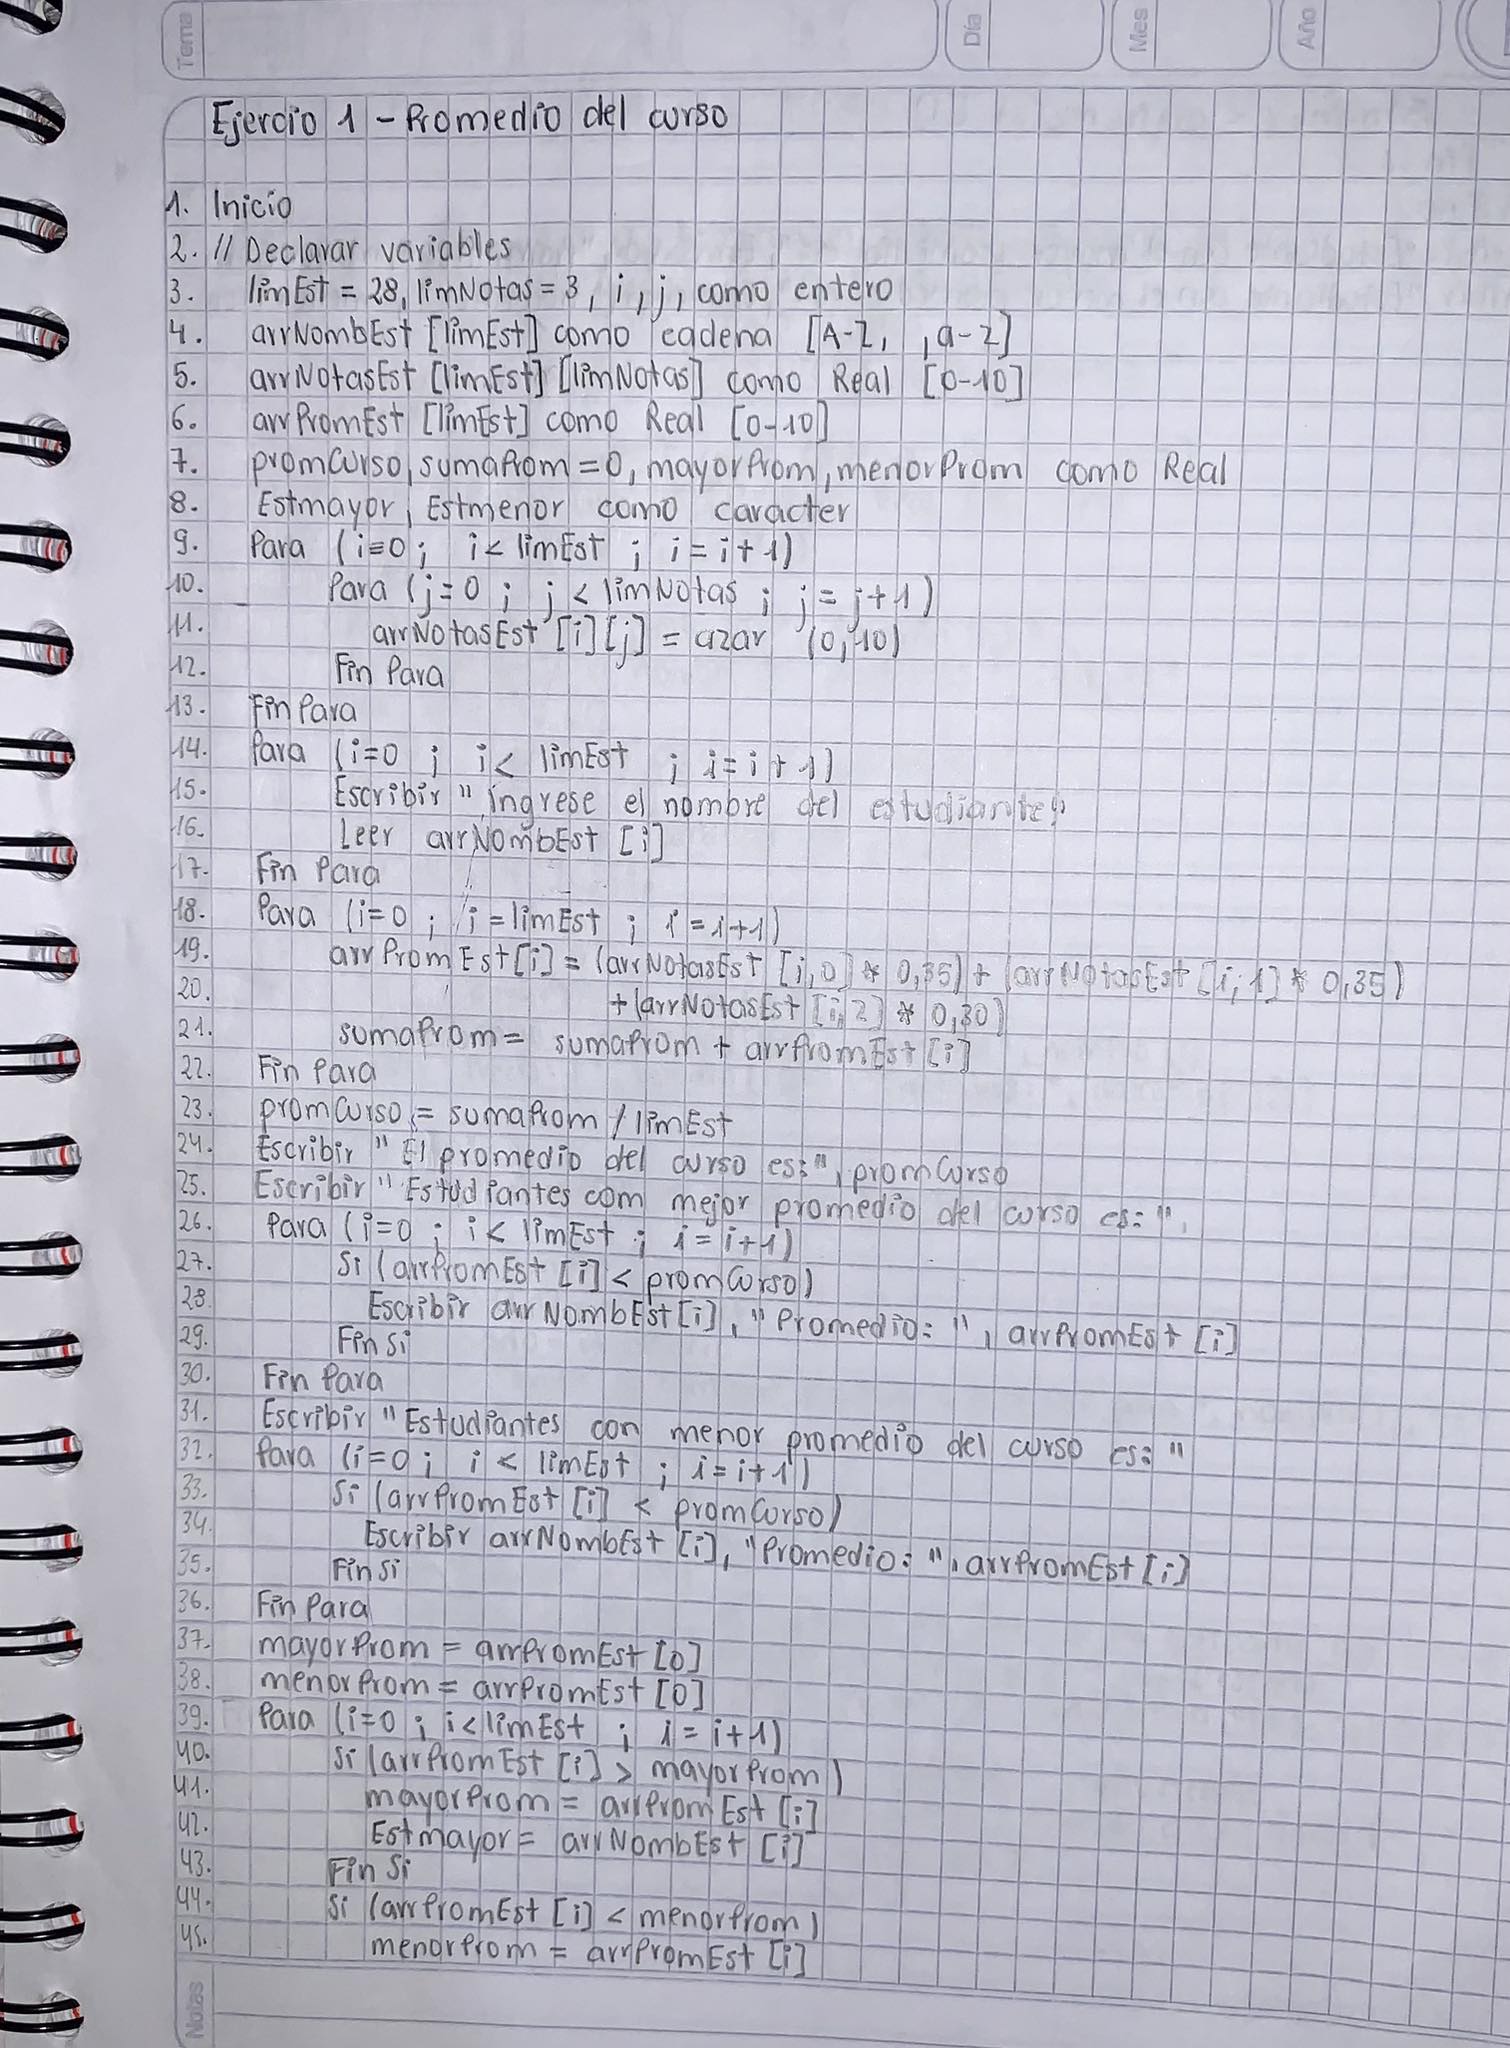 Tema
Día
Mes
Año
Ejercio 1 - Promedio del curso
1. Inicio
2. // Declarar variables
3. limEst = 28, limNotas = 3, i, j, como entero
4. arrNombEst [limEst] como cadena [A-Z, , a-z]
5. arrNotasEst [limEst] [limNotas] como Real [0-10]
6. arrPromEst [limEst] como Real [0-10]
7. promCurso, sumaProm = 0, mayorProm, menorProm como Real
8. Estmayor, Estmenor como caracter
9. Para (i=0 ; i < limEst ; i = i + 1)
10. Para (j=0 ; j < limNotas ; j = j+1)
11. arrNotasEst [i][j] = azar (0,10)
12. Fin Para
13. Fin Para
14. Para (i=0 ; i < limEst ; i = i + 1)
15. Escribir " ingrese el nombre del estudiante"
16. Leer arrNombEst [i]
17. Fin Para
18. Para (i=0 ; i = limEst ; i = i+1)
19. arrPromEst[i] = (arrNotasEst [i,0] * 0,35) + (arrNotasEst [i,1] * 0,35)
20. + (arrNotasEst [i,2] * 0,30)
21. sumaProm = sumaProm + arrPromEst[i]
22. Fin Para
23. promCurso = sumaProm / limEst
24. Escribir " El promedio del curso es:", promCurso
25. Escribir " Estudiantes com mejor promedio del curso es: ",
26. Para (i=0 ; i < limEst ; i = i+1)
27. Si (arrPromEst [i] < promCurso)
28. Escribir arrNombEst[i], " Promedio: ", arrPromEst [i]
29. Fin Si
30. Fin Para
31. Escribir " Estudiantes con menor promedio del curso es: "
32. Para (i=0 ; i < limEst ; i = i + 1)
33. Si (arrPromEst [i] < promCurso)
34. Escribir arrNombEst [i], "Promedio: ", arrPromEst [i]
35. Fin Si
36. Fin Para
37. mayorProm = arrPromEst [0]
38. menorProm = arrPromEst [0]
39. Para (i=0 ; i < limEst ; i = i+1)
40. Si (arrPromEst [i] > mayorProm)
41. mayorProm = arrPromEst [i]
42. Estmayor = arrNombEst [i]
43. Fin Si
44. Si (arrPromEst [i] < menorProm)
45. menorProm = arrPromEst [i]
Notas